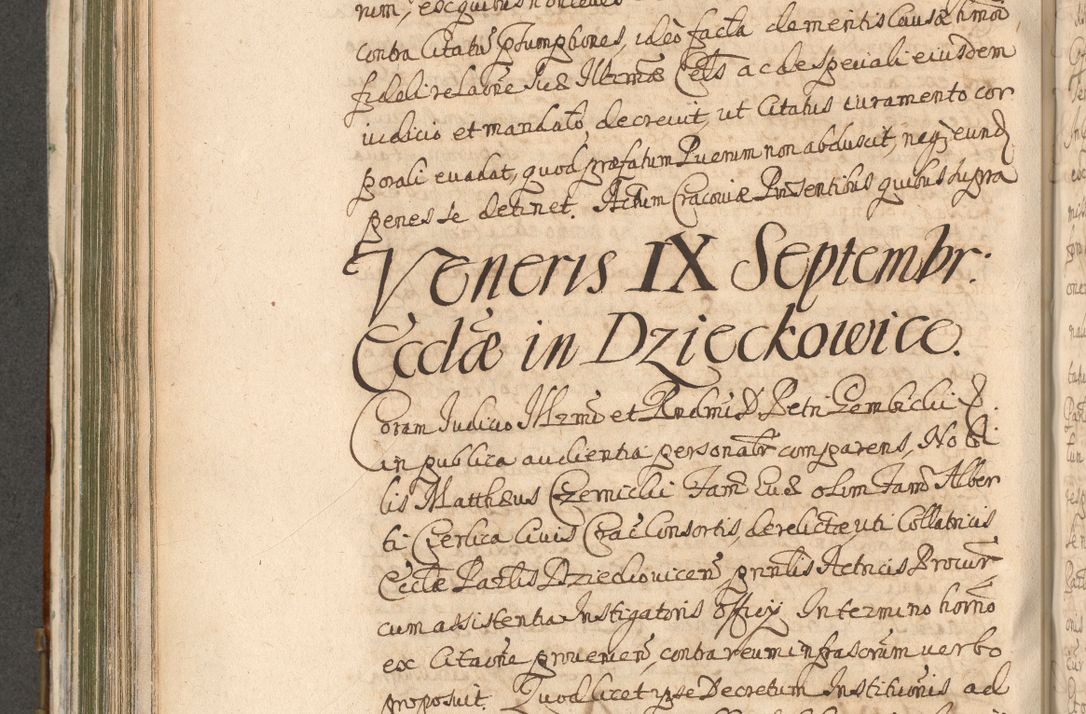 contra Citatu᷎ p̃sumptiones, ideò facta de meritis causæ himõi
fideli relaõne Suæ Illr̃mæ Cels̃ ac de speciali eiusdem
iudicio et mandato, decrevit, ut Citatus iuramento cor
porali evadat, quod præfatum Puerum non abduxit, neq; eund̃
penes se detinet. Actum Cracoviæ Præsentibus quibus supra
Veneris IX Septembr:
Ecclæ in Dzieckowice.
Coram Iudicio Illr̃mi et Rndm̃i D. Petri Gembicki
in publica audientia personalr̃ comparens, No
lis Matthæus Czernicki Fam̃ Euæ olim Fam̃ Alber
ti Cierlica Civis Crac̃ Consortis, derelictæ, uti Collatricis
Ecclæ Par̃lis Dzieckovicen̄, pñtis Actricis Procur̃
cum assistentia Instigatoris Officÿ In termino horno
ex Citaõne proueniẽ, contra reum infrascr̃um verbo
proposuit. Quod licet ipse Decretum Institutionis ad